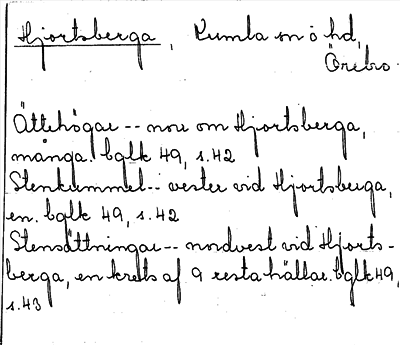 Hjortsberga, Kumla sn o hd,
Örebro.
Ättehögar -- norr om Hjortsberga,
många. bglk 49, s.42
Stenkummel -- vester vid Hjortsberga,
en. bglk 49, s.42
Stensättningar -- nordvest vid Hjorts-
berga, en krets af 9 resta hällar. bglk 49,
s.43